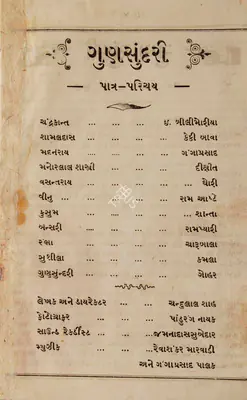 ગુણસુંદરી
પાત્ર-પરિચય
ચંદ્રકાન્ત ... ... ... ઇ. બીલીમોરીયા
શામળદાસ ... ... ... કેકી બાવા
મદનરાય ... ... ... ગંગાપ્રસાદ
મનોરલાલ શાસ્ત્રી ... ... દીક્ષીત
વસન્તરાય ... ... ... ઘોરી
ધીતુ ... ... ... રામ આપ્ટે
કુસુમ ... ... ... શાન્તા
બન્સરી ... ... ... રામપ્યારી
રંભા ... ... ... ચારૂબાલા
સુશીલા ... ... ... કમલા
ગુણસુંદરી ... ... ... ગોહર
લેખક અને ડાયરેક્ટર ... ... ચન્દુલાલ શાહ
ફોટોગ્રાફર ... ... ... પાંડુરંગ નાયક
સાઉન્ડ રેકર્ડીસ્ટ ... ... જમનાદાસ સુબેદાર
મ્યુઝીક ... ... ... રેવાશંકર મારવાડી
અને ગંગાપ્રસાદ પાઠક